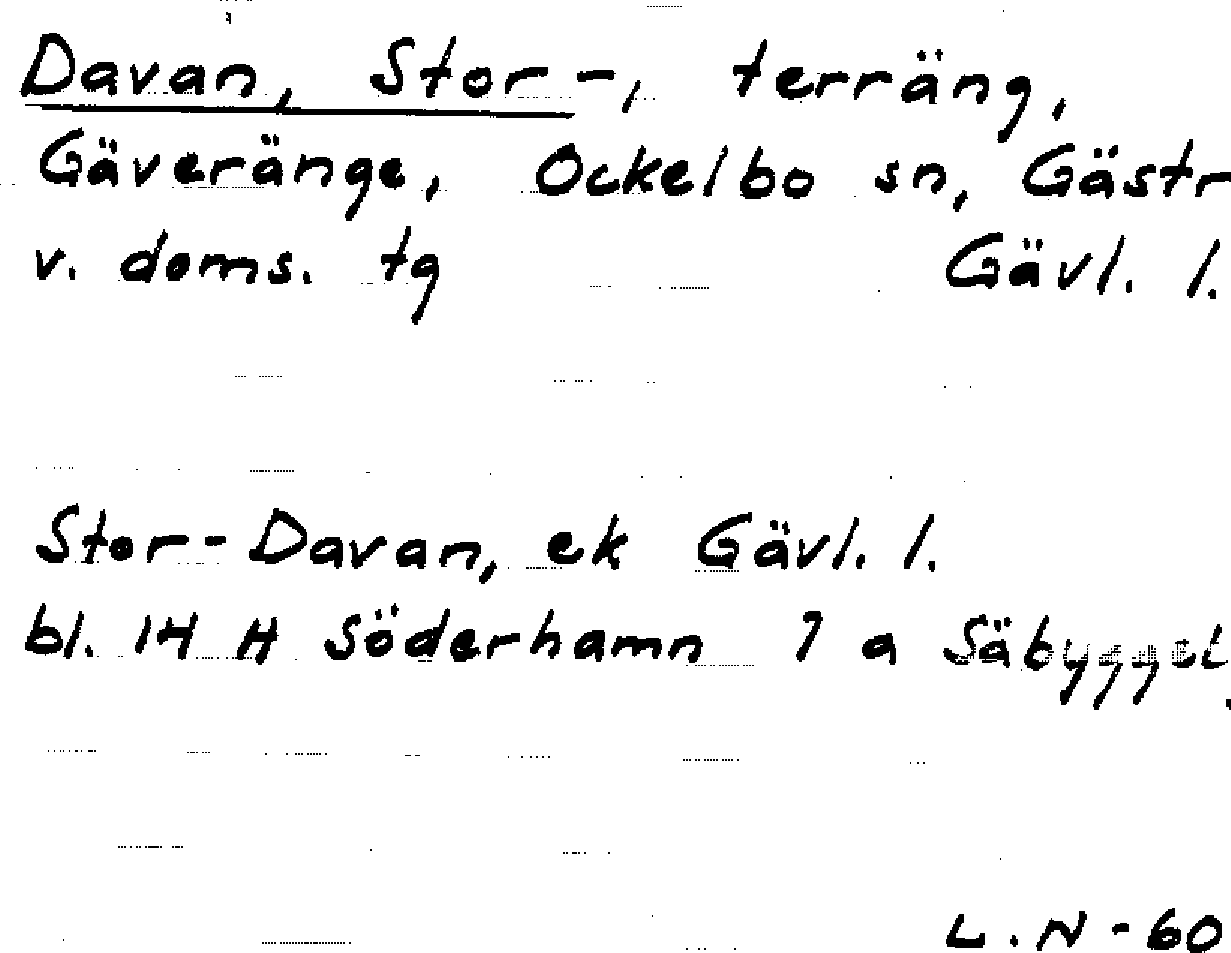 Davan, Stor-, terräng,
Gäveränge, Ockelbo sn, Gästr
v. doms. tg Gävl. l.
Stor-Davan, ek Gävl. l.
bl. 14 H Söderhamn 7 a Säbygget
L.N-60